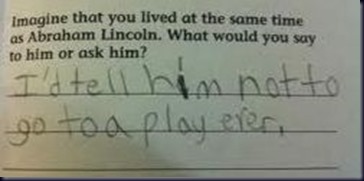 Imagine that you lived at the same time
as Abraham Lincoln. What would you say
to him or ask him?
I'd tell him not to
go to a play ever.